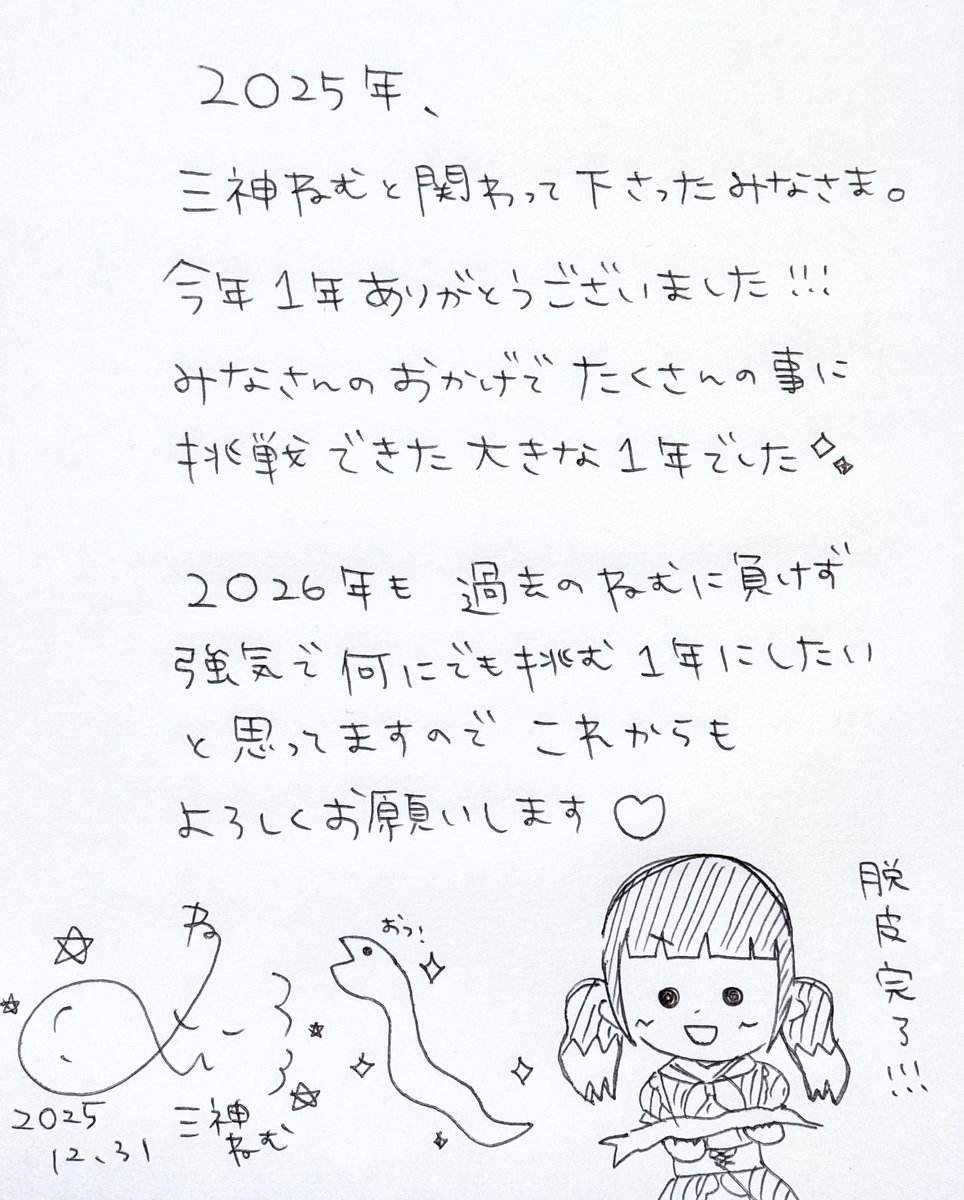 2025年、
三神ねむと関わって下さったみなさま。
今年1年ありがとうございました!!!
みなさんのおかげでたくさんの事に
挑戦できた大きな1年でした
2026年も 過去のねむに負けず
強気で何にでも挑む1年にしたい
と思ってますので これからも
よろしくお願いします♡
脱皮完了!!!
おっ!
ね
2025
12.31
三神
ねむ